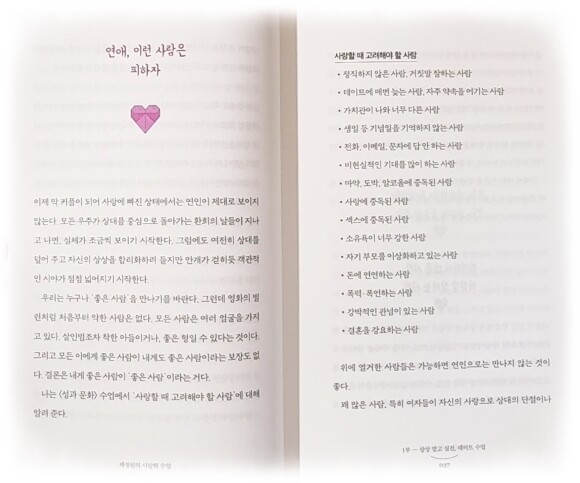 연애, 이런 사람은
피하자
이제 막 커플이 되어 사랑에 빠진 상태에서는 연인이 제대로 보이지
않는다. 모든 우주가 상대를 중심으로 돌아가는 환희의 날들이 지나
고 나면, 실체가 조금씩 보이기 시작한다. 그럼에도 여전히 상대를
덮어 주고 자신의 상상을 합리화하려 들지만 안개가 걷히듯 객관적
인 시야가 점점 넓어지기 시작한다.
우리는 누구나 '좋은 사람'을 만나기를 바란다. 그런데 영화의 빌
런처럼 처음부터 악한 사람은 없다. 모든 사람은 여러 얼굴을 가지
고 있다. 살인범조차 착한 아들이거나, 좋은 형일 수 있다는 것이다.
그리고 모든 이에게 좋은 사람이 내게도 좋은 사람이라는 보장도 없
다. 결론은 내게 좋은 사람이 '좋은 사람'이라는 거다.
나는 〈성과 문화〉 수업에서 '사랑할 때 고려해야 할 사람'에 대해
알려 준다.
사랑할 때 고려해야 할 사람
• 정직하지 않은 사람, 거짓말 잘하는 사람
• 데이트에 매번 늦는 사람, 자주 약속을 어기는 사람
• 가치관이 나와 너무 다른 사람
• 생일 등 기념일을 기억하지 않는 사람
• 전화, 이메일, 문자에 답 안 하는 사람
• 비현실적인 기대를 많이 하는 사람
• 마약, 도박, 알코올에 중독된 사람
• 사랑에 중독된 사람
• 섹스에 중독된 사람
• 소유욕이 너무 강한 사람
• 자기 부모를 이상화하고 있는 사람
• 돈에 연연하는 사람
• 폭력·폭언하는 사람
• 강박적인 관념이 있는 사람
• 결혼을 강요하는 사람
위에 열거한 사람들은 가능하면 연인으로는 만나지 않는 것이
좋다.
꽤 많은 사람, 특히 여자들이 자신의 사랑으로 상대의 단점이나
1부 — 상상 말고 실전, 데이트 수업
037